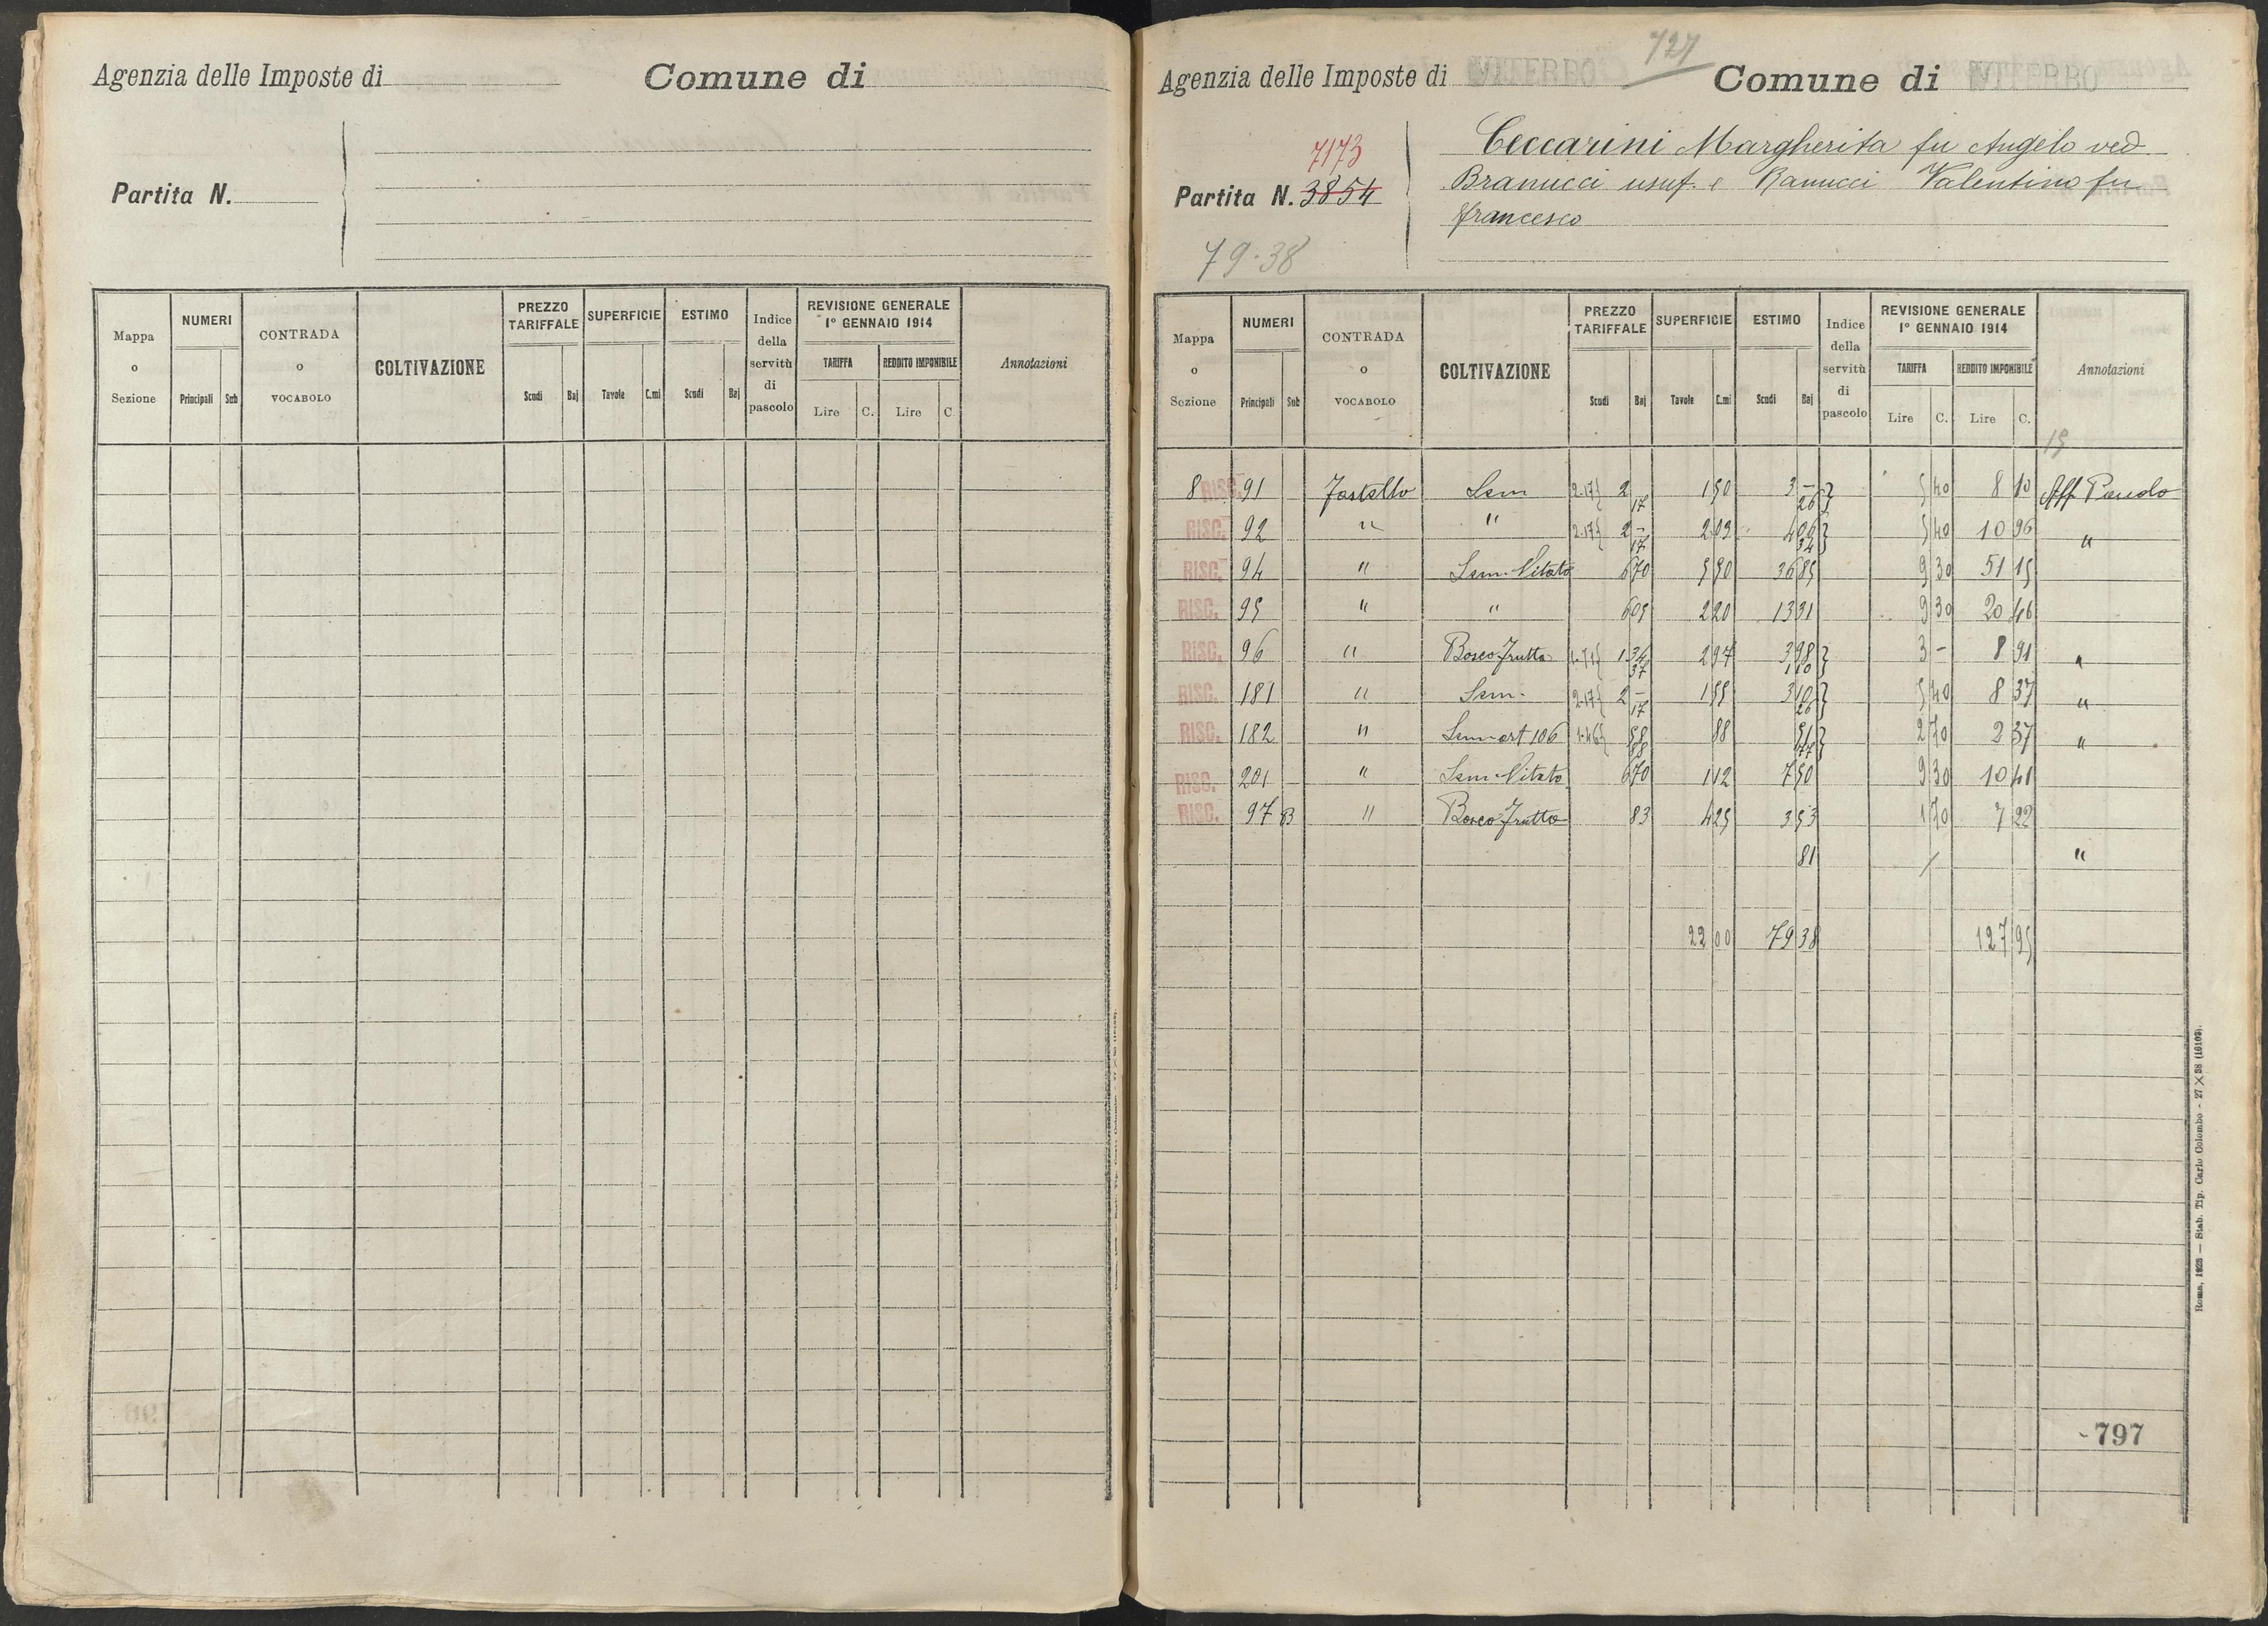 Agenzia delle Imposte di
Comune di
Partita N.
Mappa o Sezione
NUMERI
Principali Sub
CONTRADA o VOCABOLO
COLTIVAZIONE
PREZZO TARIFFALE
Scudi Baj
SUPERFICIE
Tavole C.mi
ESTIMO
Scudi Baj
Indice della servitù di pascolo
REVISIONE GENERALE
1° GENNAIO 1914
TARIFFA
Lire C.
REDDITO IMPONIBILE
Lire C
Annotazioni
727
Agenzia delle Imposte di VITERBO
Comune di VITERBO
7173
Partita N. 3854
79.38
Ceccarini Margherita fu Angelo ved
Branucci usuf. e Ranucci Valentino fu
Francesco
Mappa o Sezione
NUMERI
Principali Sub
CONTRADA o VOCABOLO
COLTIVAZIONE
PREZZO TARIFFALE
Scudi Baj
SUPERFICIE
Tavole C.mi
ESTIMO
Scudi Baj
Indice della servitù di pascolo
REVISIONE GENERALE
1° GENNAIO 1914
TARIFFA
Lire C.
REDDITO IMPONIBILE
Lire C.
Annotazioni
15
8 RISC. 91 Fastello Sem 2.17 } 2 - 1 50 3 - } 5 40 8 10 Aff
17 26
RISC. 92 " " 2.17 } 2 - 2 03 4 06 } 5 40 10 96 "
17 34
RISC. 94 " Sem. Vitato 6 70 5 50 36 85 9 30 51 15
RISC. 95 " " 6 05 2 20 13 31 9 30 20 46
RISC. 96 " Bosco Frutto 1.71 } 1 34 2 97 3 98 } 3 - 8 91 "
37 1 10
RISC. 181 " Sem. 2.17 } 2 - 1 55 3 10 } 5 40 8 37 "
17 26
RISC. 182 " Sem art 106 1.46 } 58 88 51 } 2 70 2 37 "
88 77
RISC. 201 " Sem. Vitato 6 70 1 12 7 50 9 30 10 41
RISC. 97 B " Bosco Frutto 83 4 25 3 53 1 70 7 22
81 "
22 00 79 38 127 95
797
Roma, 1928 — Stab. Tip. Carlo Colombo - 27 × 38 (16103).